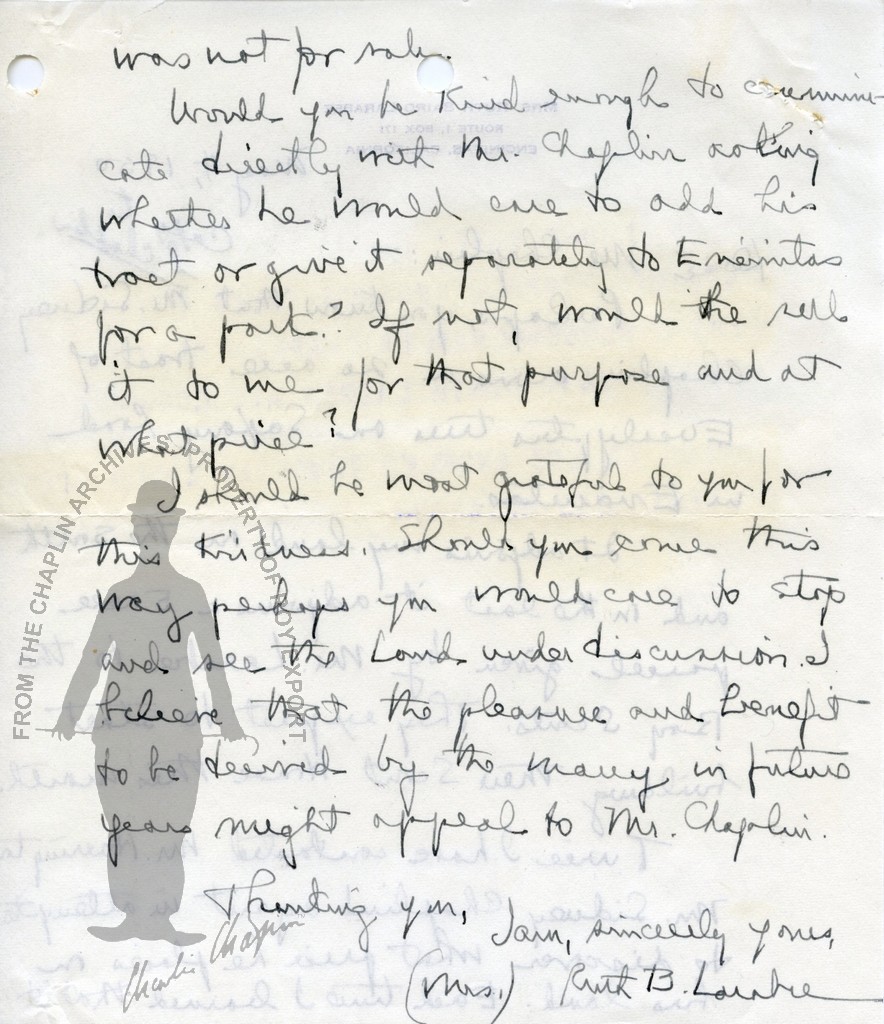 was not for sale.
Would you be kind enough to communi-
cate directly with Mr. Chaplin asking
whether he would care to add his
tract or give it separately to Encinitas
for a park? If not, would he sell
it to me for that purpose and at
what price?
I should be most grateful to you for
this kindness. Should you come this
way perhaps you would care to stop
and see the land under discussion. I
believe that the pleasure and benefit
to be derived by the many in future
years might appeal to Mr. Chaplin.
Thanking you,
I am, sincerely yours,
(Mrs.) Ruth B.
FROM THE CHAPLIN ARCHINES. PROPERTY OF ROY EXPORT
Charlie Chaplin